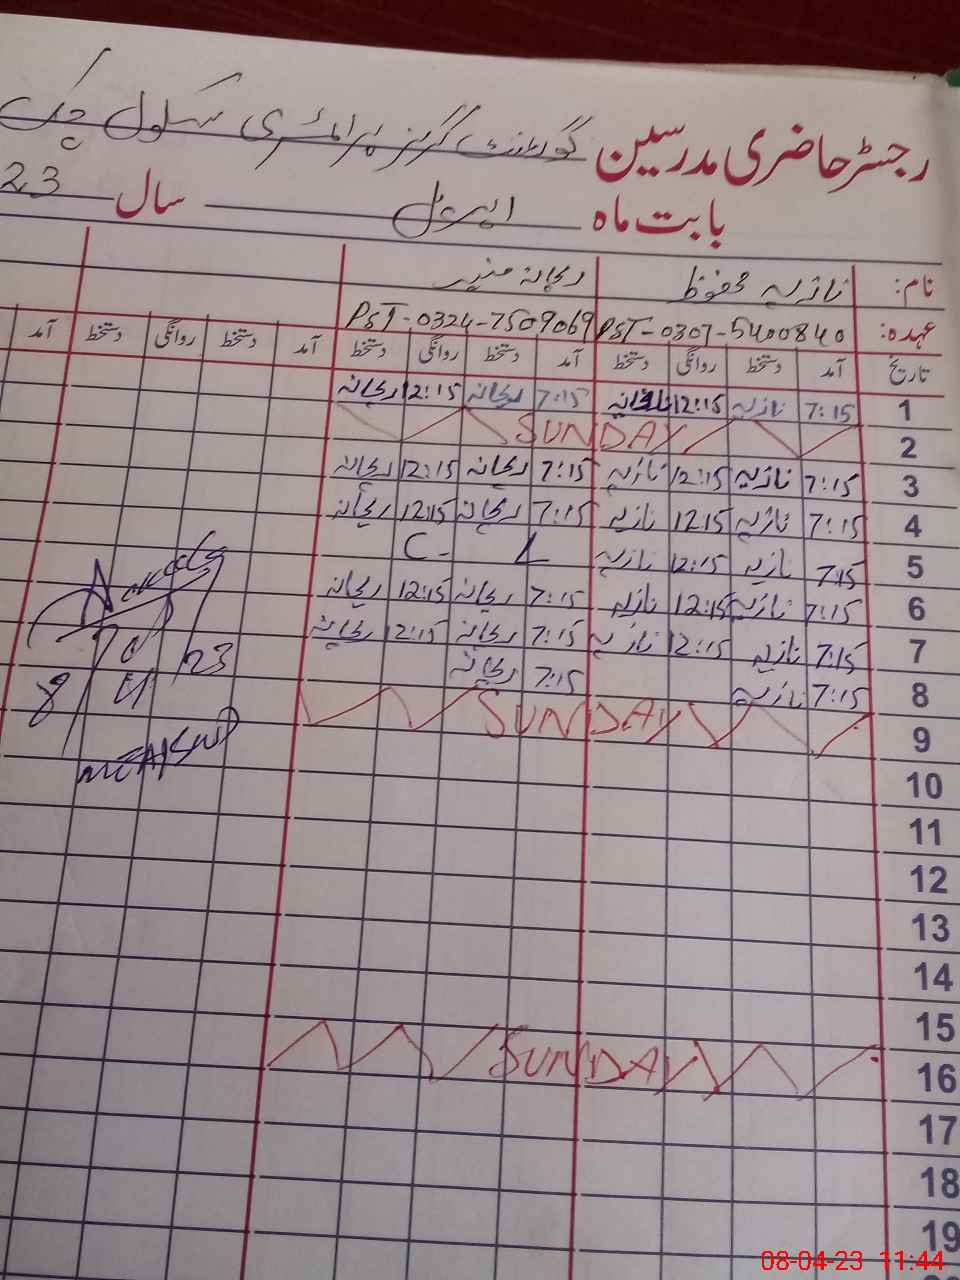 رجسٹر حاضری مدرسین گورنمنٹ گرلز پرائمری سکول چک
بابت ماہ اپریل سال 23
نام: نازیہ محفوظ ریحانہ منیر
عہدہ: PST-0307-5400840 PST-0324-7509069
تاریخ آمد دستخط روانگی دستخط آمد دستخط روانگی دستخط آمد دستخط روانگی دستخط آمد
1 7:15 نازیہ 12:15 نازیہ 7:15 ریحانہ 12:15 ریحانہ
2 SUNDAY
3 7:15 نازیہ 12:15 نازیہ 7:15 ریحانہ 12:15 ریحانہ
4 7:15 نازیہ 12:15 نازیہ 7:15 ریحانہ 12:15 ریحانہ
5 7:15 نازیہ 12:15 نازیہ C- L
6 7:15 نازیہ 12:15 نازیہ 7:15 ریحانہ 12:15 ریحانہ
7 7:15 نازیہ 12:15 نازیہ 7:15 ریحانہ 12:15 ریحانہ
8 7:15 نازیہ 7:15 ریحانہ
8/4/23
9 SUNDAY
10
11
12
13
14
15
16 SUNDAY
17
18
19
08-04-23 11:44